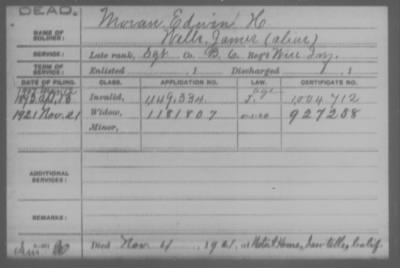 DEAD.
NAME OF SOLDIER: Moran, Edwin H.
Wells, James (alias)
SERVICE: Late rank, Sgt Co. B, 6 Reg't Wis. Inf.
TERM OF SERVICE: Enlisted , 1 Discharged , 1
DATE OF FILING. CLASS. APPLICATION NO. LAW. CERTIFICATE NO.
Invalid, 1,149,334 1,004,712
1921 Nov. 21 Widow, 1181807 927258
Minor,
ADDITIONAL SERVICES:
REMARKS:
Died Nov 4, 1921, at Sawtelle, Calif